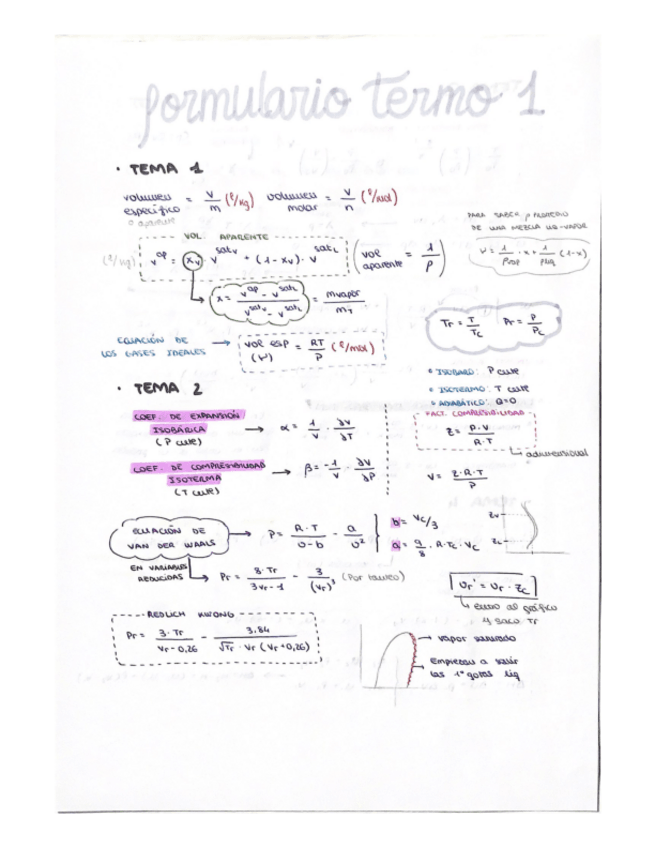 formulario termo 1
· TEMA 1
volumen específico = V/m (l/kg) volumen molar = V/n (l/mol)
o aparente
PARA SABER ρ PROMEDIO
DE UNA MEZCLA LIQ-VAPOR
VOL. APARENTE
(l/kg) v^ap = x_v · v^sat_v + (1-x_v) · v^sat_L (vol aparente = 1/ρ)
v = 1/ρvap · x + 1/ρliq (1-x)
x = (v^ap - v^sat_L)/(v^sat_v - v^sat_L) = mvapor/m_T
Tr = T/Tc Pr = P/Pc
ECUACIÓN DE
LOS GASES IDEALES → vol esp (V) = RT/P (l/mol)
· ISOBARO: P cute
· ISOTERMO: T cute
· ADIABÁTICO: Q=0
· TEMA 2
COEF. DE EXPANSIÓN
ISOBÁRICA
(P cute) → α = 1/v · ∂V/∂T
FACT. COMPRESIBILIDAD
Z = P·V/R·T
↳ adimensional
COEF. DE COMPRESIBILIDAD
ISOTERMA
(T cute) → β = -1/v · ∂V/∂P
V = Z·R·T/P
ECUACIÓN DE
VAN DER WAALS → P = R·T/(v-b) - a/v²
b = Vc/3
a = 9/8 · R·Tc·Vc
Zv
Zc
EN VARIABLES
REDUCIDAS → Pr = 8·Tr/(3vr-1) - 3/(vr)² (Por tanteo)
vr' = vr · Zc
↳ entro al gráfico
y saco Tr
REDLICH KWONG
Pr = 3·Tr/(vr-0,26) - 3,84/(√Tr · vr (vr+0,26))
→ vapor saturado
→ Empiezan a salir
las 1ª gotas liq